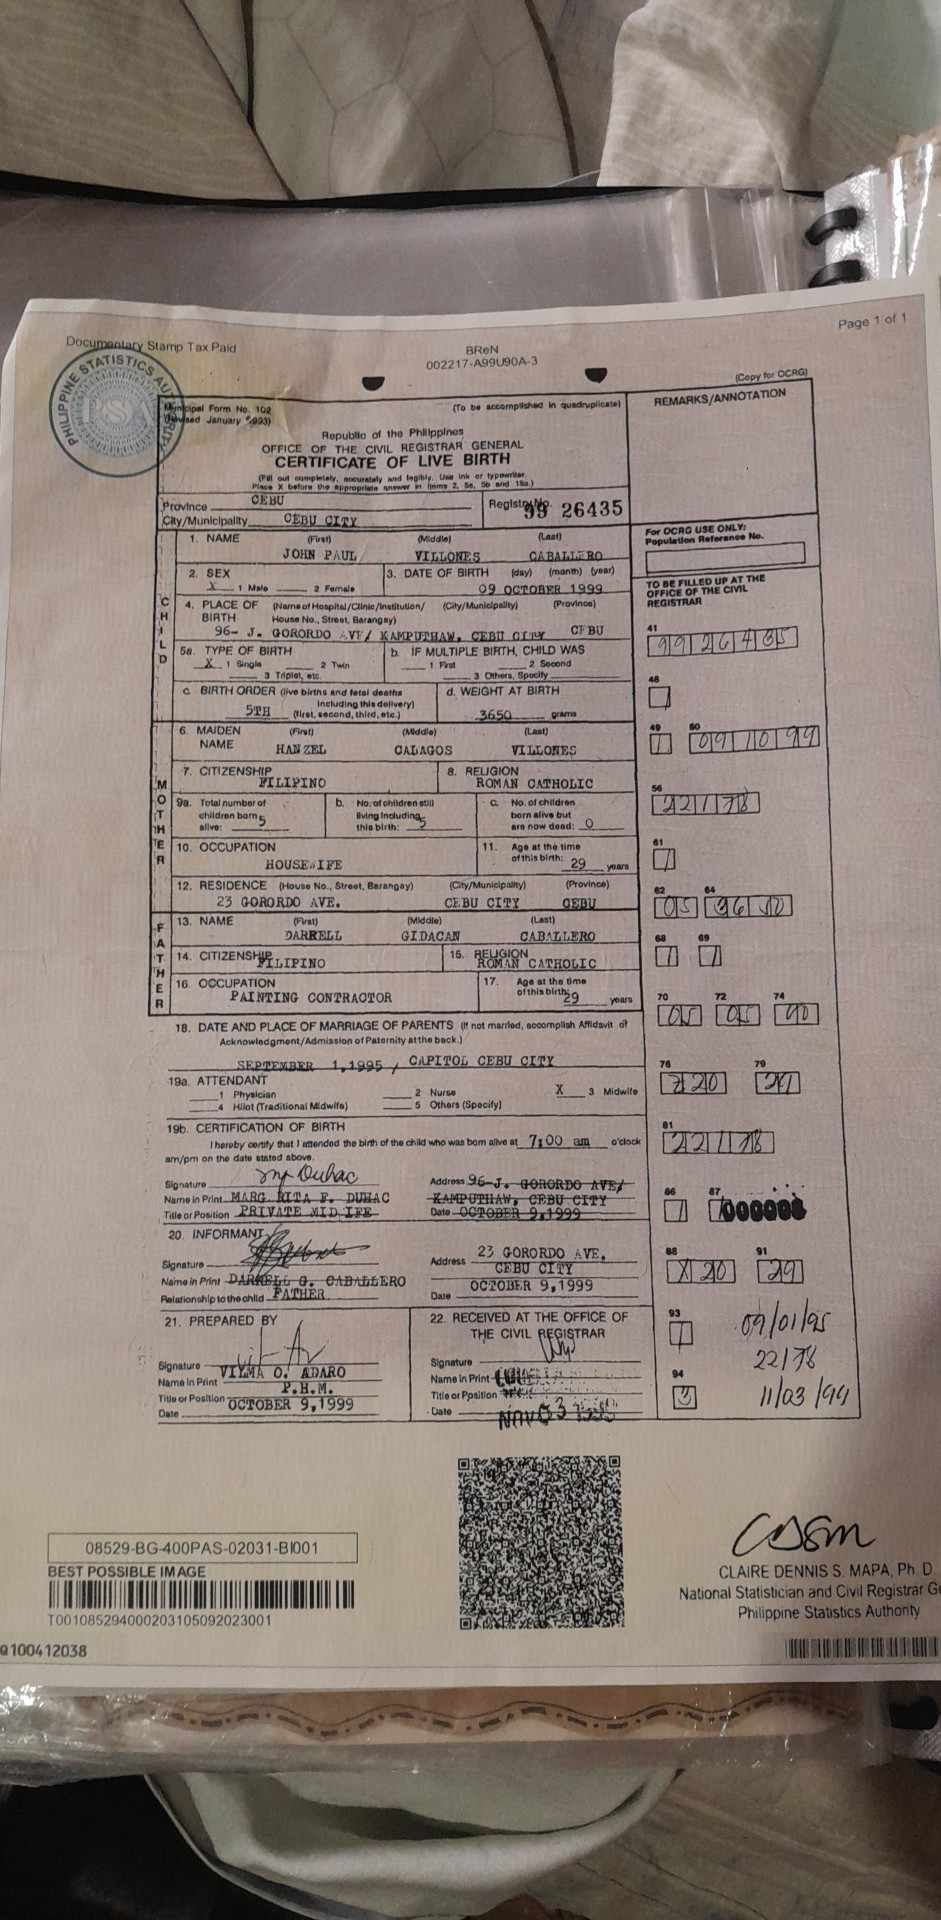 Page 1 of 1
Documentary Stamp Tax Paid
BReN
002217-A99U90A-3
(Copy for OCRG)
PHILIPPINE STATISTICS AUTHORITY
PSA
Municipal Form No. 102
(Revised January 1993)
(To be accomplished in quadruplicate)
REMARKS/ANNOTATION
Republic of the Philippines
OFFICE OF THE CIVIL REGISTRAR GENERAL
CERTIFICATE OF LIVE BIRTH
(Fill out completely, accurately and legibly. Use ink or typewriter.
Place X before the appropriate answer in items 2, 5a, 5b and 19a.)
Province CEBU
Registry No. 99 26435
City/Municipality CEBU CITY
For OCRG USE ONLY:
Population Reference No.
CHILD
1. NAME (First) (Middle) (Last)
JOHN PAUL VILLONES CABALLERO
2. SEX
X 1 Male 2 Female
3. DATE OF BIRTH (day) (month) (year)
09 OCTOBER 1999
TO BE FILLED UP AT THE
OFFICE OF THE CIVIL
REGISTRAR
4. PLACE OF BIRTH (Name of Hospital/Clinic/Institution/ House No., Street, Barangay) (City/Municipality) (Province)
96- J. GORORDO AVE/ KAMPUTHAW, CEBU CITY CEBU
41
9926435
5a. TYPE OF BIRTH
X 1 Single 2 Twin
3 Triplet, etc.
b. IF MULTIPLE BIRTH, CHILD WAS
1 First 2 Second
3 Others, Specify
48
c. BIRTH ORDER (live births and fetal deaths
including this delivery)
5TH (first, second, third, etc.)
d. WEIGHT AT BIRTH
3650 grams
49 50
1 091099
MOTHER
6. MAIDEN NAME (First) (Middle) (Last)
HANZEL CALAGOS VILLONES
7. CITIZENSHIP
FILIPINO
8. RELIGION
ROMAN CATHOLIC
56
22178
9a. Total number of
children born
alive: 5
b. No. of children still
living including
this birth: 5
c. No. of children
born alive but
are now dead: 0
10. OCCUPATION
HOUSEWIFE
11. Age at the time
of this birth: 29 years
61
1
12. RESIDENCE (House No., Street, Barangay) (City/Municipality) (Province)
23 GORORDO AVE. CEBU CITY CEBU
62 64
05
FATHER
13. NAME (First) (Middle) (Last)
DARRELL GIDACAN CABALLERO
14. CITIZENSHIP
FILIPINO
15. RELIGION
ROMAN CATHOLIC
68 69
1 1
16. OCCUPATION
PAINTING CONTRACTOR
17. Age at the time
of this birth: 29 years
70 72 74
05 05 90
18. DATE AND PLACE OF MARRIAGE OF PARENTS (If not married, accomplish Affidavit of
Acknowledgment/Admission of Paternity at the back.)
SEPTEMBER 1,1995 / CAPITOL CEBU CITY
76 79
19a. ATTENDANT
1 Physician 2 Nurse X 3 Midwife
4 Hilot (Traditional Midwife) 5 Others (Specify)
19b. CERTIFICATION OF BIRTH
I hereby certify that I attended the birth of the child who was born alive at 7:00 am o'clock
am/pm on the date stated above.
81
22178
Signature
Name in Print MARG RITA F. DUHAC
Title or Position PRIVATE MIDWIFE
Address 96-J. GORORDO AVE/
KAMPUTHAW, CEBU CITY
Date OCTOBER 9,1999
86 87
1
20. INFORMANT
Signature
Name in Print DARRELL G. CABALLERO
Relationship to the child FATHER
Address 23 GORORDO AVE.
CEBU CITY
Date OCTOBER 9,1999
88 91
X20 29
21. PREPARED BY
Signature
Name in Print VILMA O. ADARO
Title or Position P.H.M.
Date OCTOBER 9,1999
22. RECEIVED AT THE OFFICE OF
THE CIVIL REGISTRAR
Signature
Name in Print
Title or Position
Date NOV 03 1999
93
1
09/01/95
22178
94
11/03/99
08529-BG-400PAS-02031-BI001
BEST POSSIBLE IMAGE
T001085294000203105092023001
Q100412038
CLAIRE DENNIS S. MAPA, Ph. D.
National Statistician and Civil Registrar
Philippine Statistics Authority